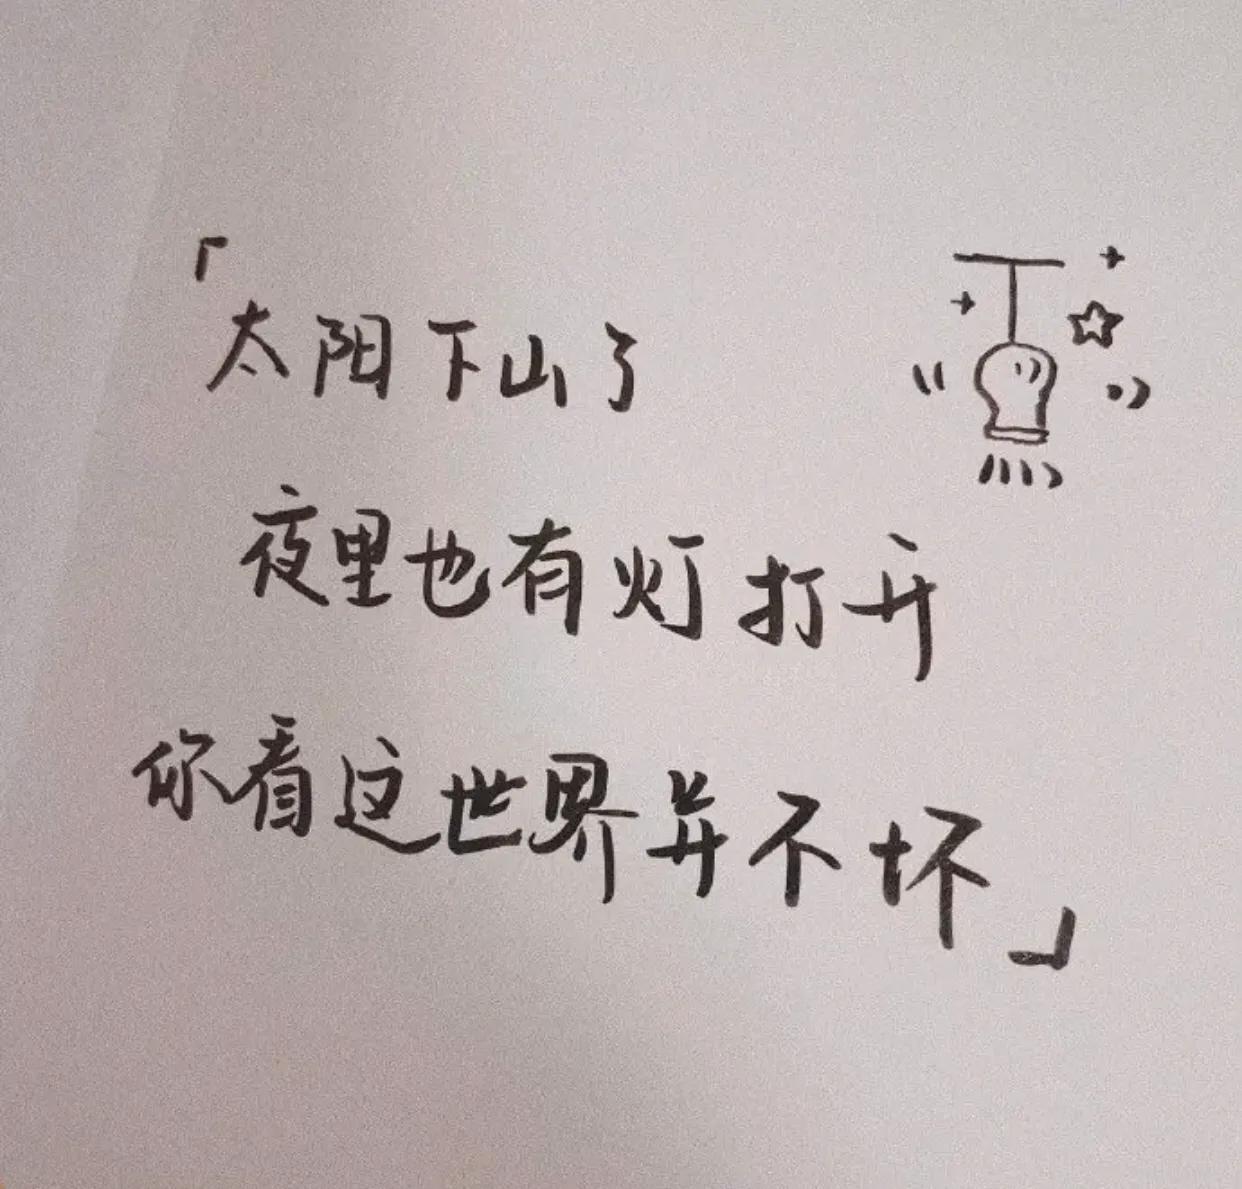 「太阳下山了
夜里也有灯打开
你看这世界并不坏」